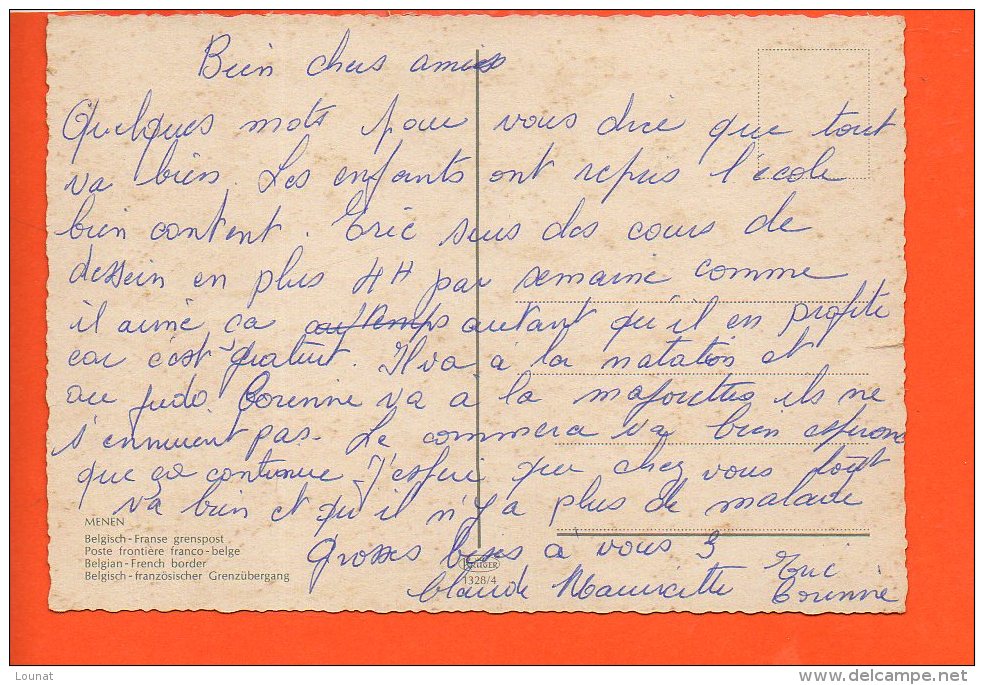 Bien chers amies
Quelques mots pour vous dire que tout
va bien. Les enfants ont repris l'école
bien content. Eric suis des cours de
dessein en plus 4H par semaine comme
il aime ça autemps autant qu'il en profite
car c'est gratuit. Il va à la natation et
au judo. Corinne va a la majorettes ils ne
s'ennuient pas. Le commerce va bien esperons
que ça continue. J'espère que chez vous tout
va bien et qu'il n'y a plus de malade
Grosses bises à vous 3
Claude Mauricette Eric
Corinne
MENEN
Belgisch-Franse grenspost
Poste frontière franco-belge
Belgian-French border
Belgisch-französischer Grenzübergang
KRÜGER
1328/4
Lounat
www.delcampe.net